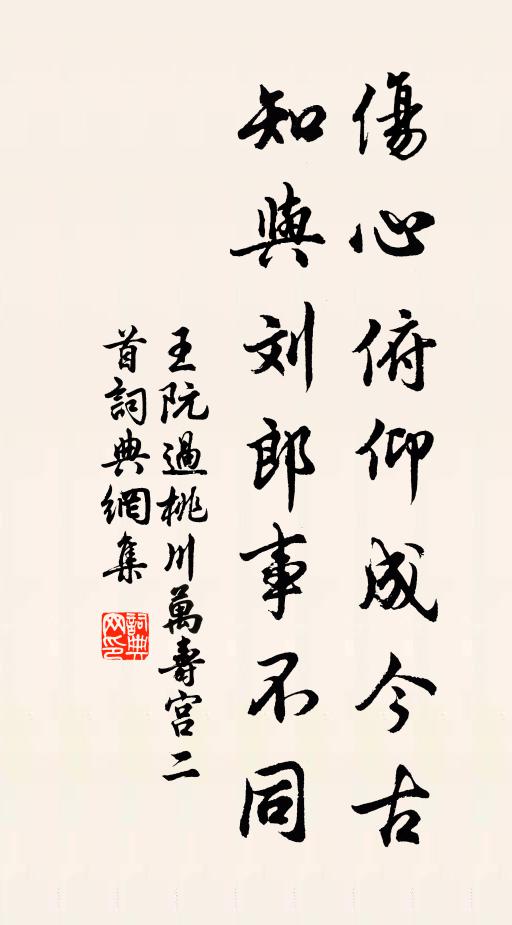 傷心俯仰成今古
知與刘郎事不同
王阮過桃川萬壽宮二
首詞典網集
詞典
网印